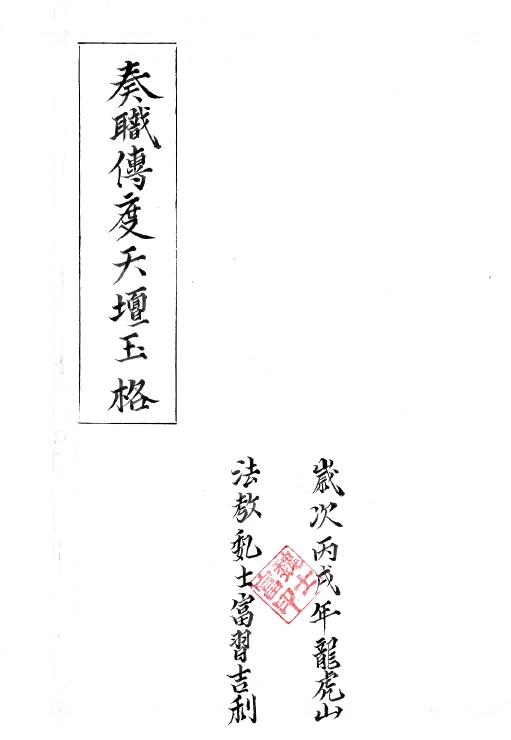 奏職傳度天壇玉格
歲次丙戌年龍虎山
法教魏士富習吉利
魏士富印